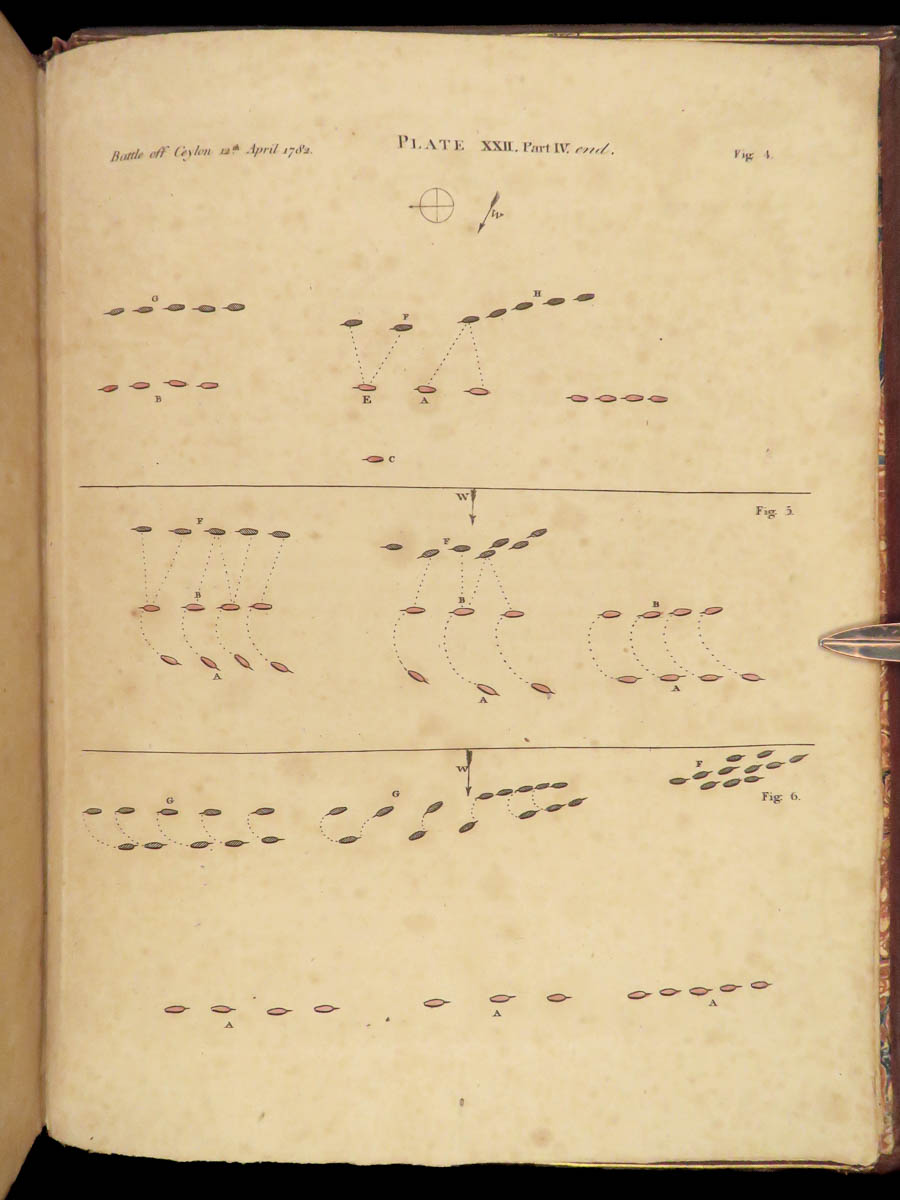 Battle off Ceylon 12th April 1782. PLATE XXII. Part IV. end. Fig. 4.
W
G H
F
B E A
C
W
Fig. 5.
F F
B B B
A A A
W F
Fig. 6.
G G
A A A